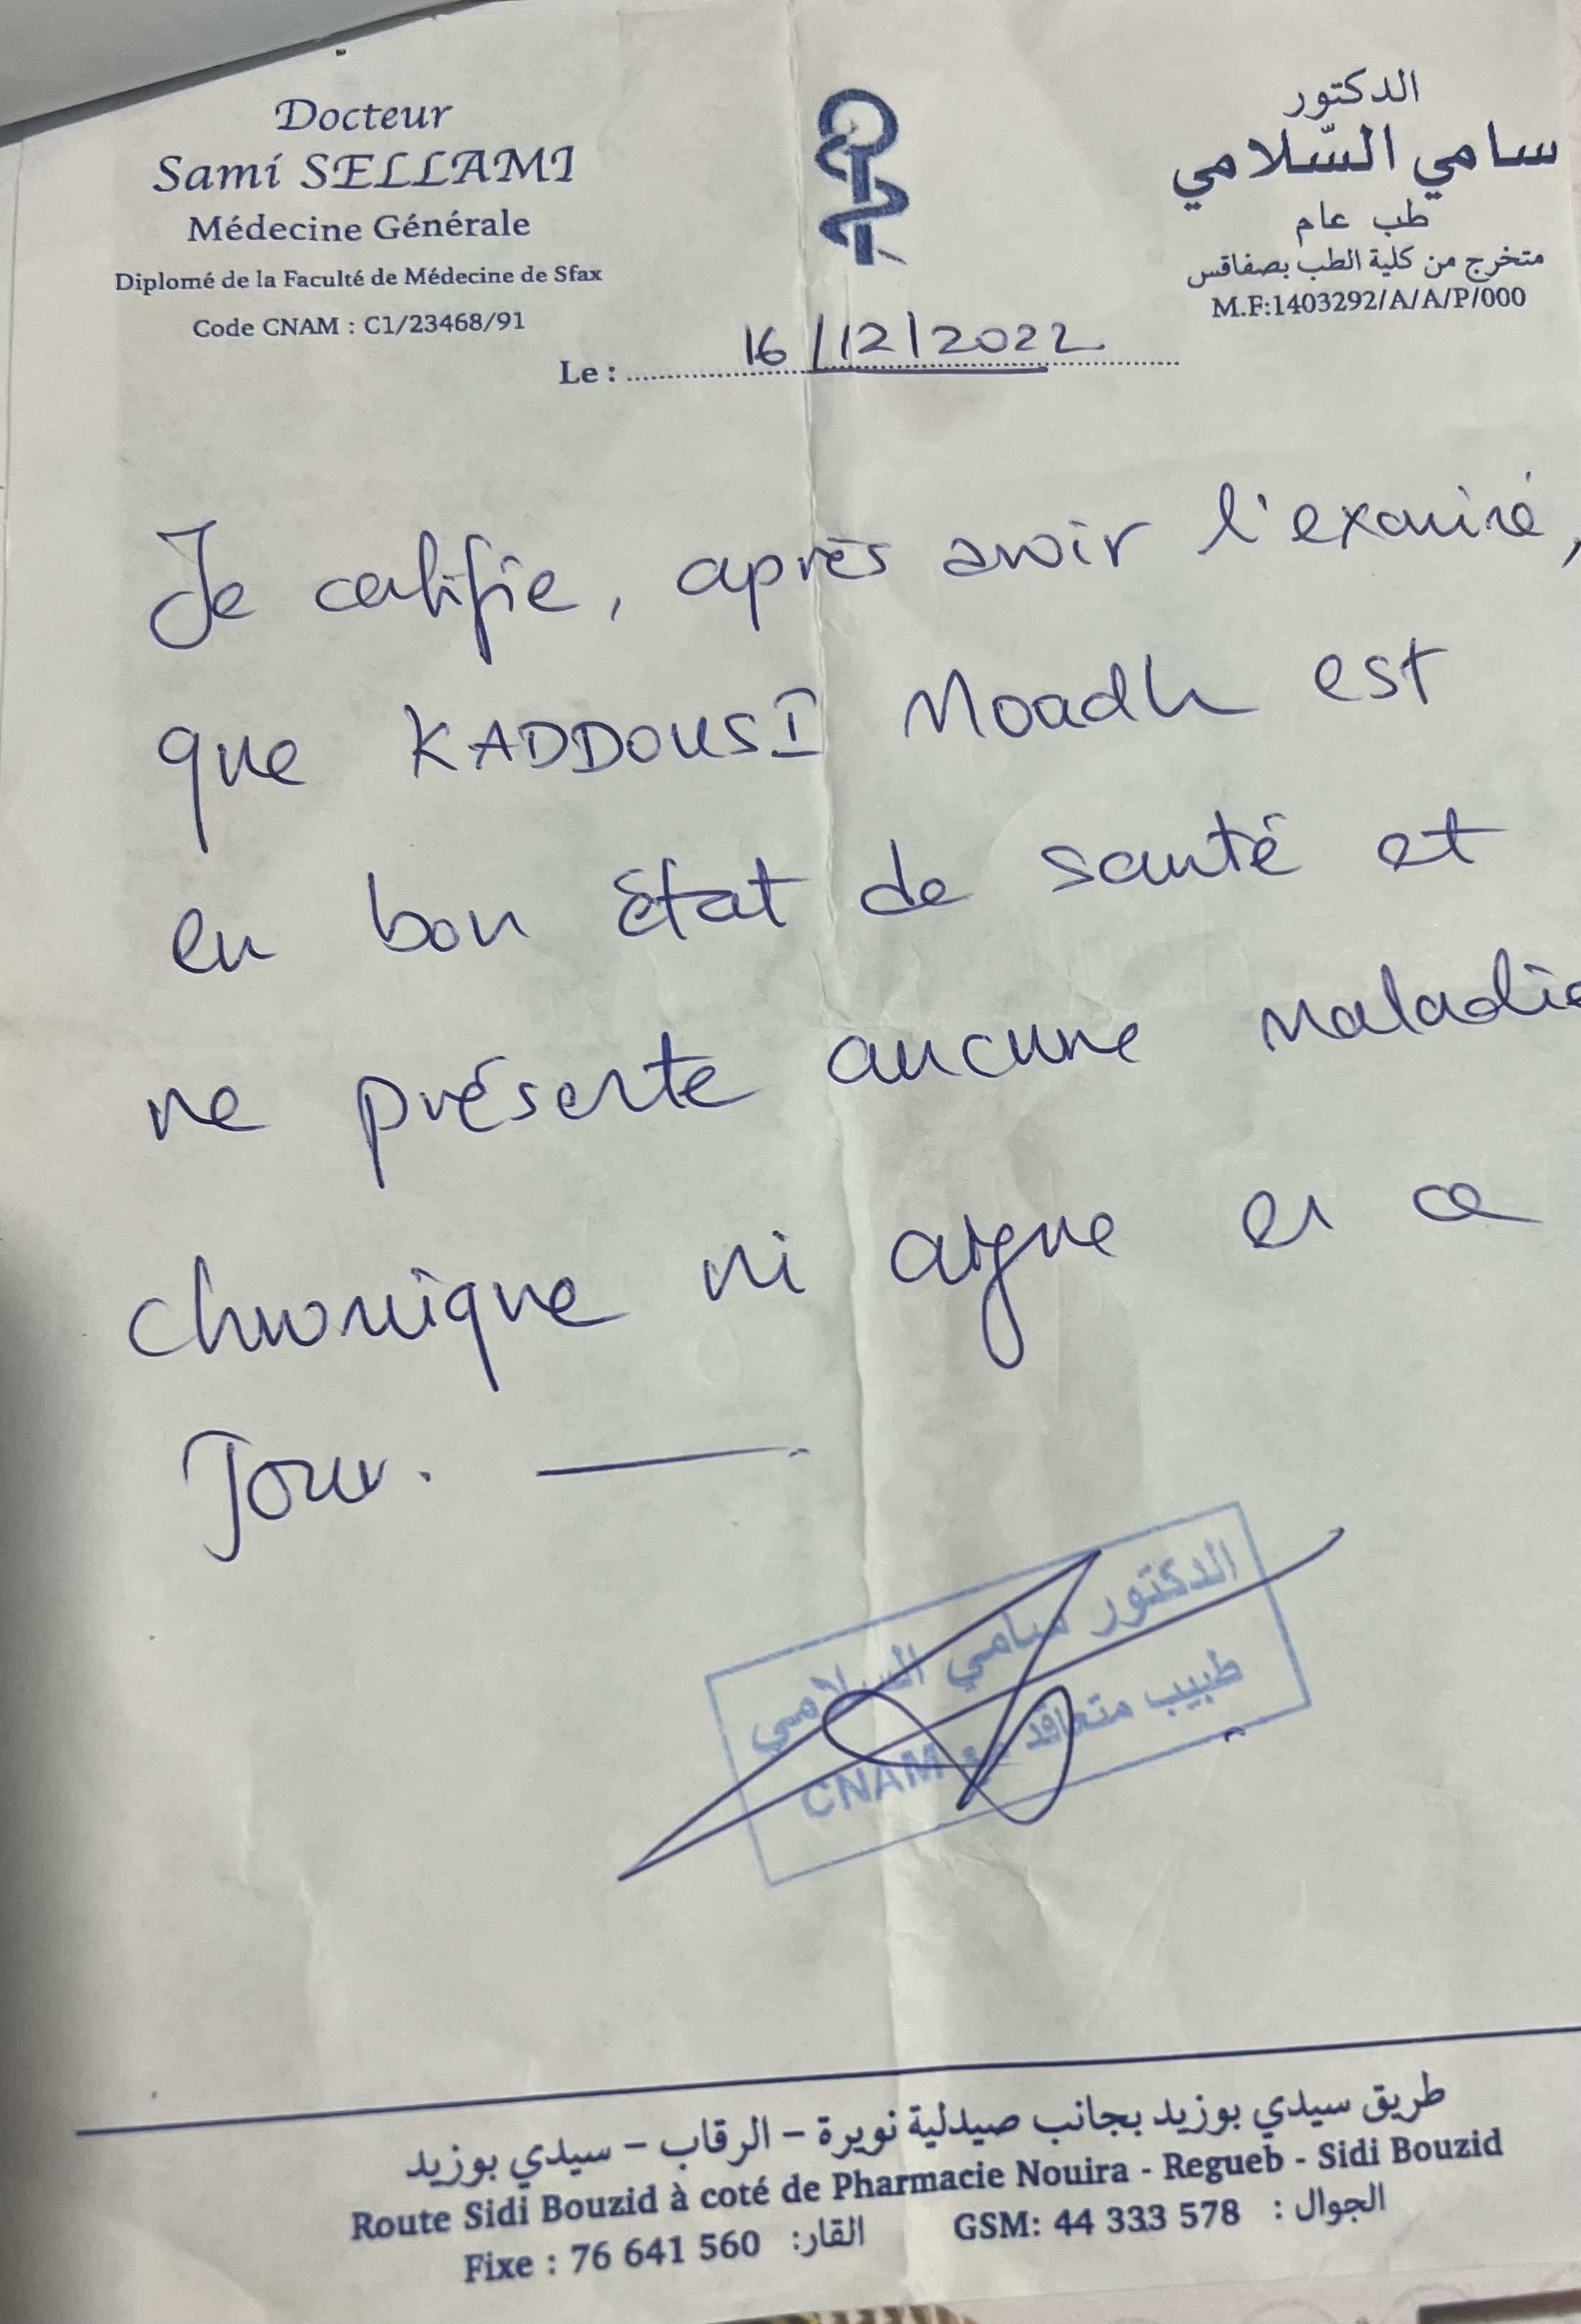 Docteur
Sami SELLAMI
Médecine Générale
Diplomé de la Faculté de Médecine de Sfax
Code CNAM : C1/23468/91
الدكتور
سامي السّلامي
طب عام
متخرج من كلية الطب بصفاقس
M.F:1403292/A/A/P/000
Le : 16/12/2022
Je certifie, après avoir l'examiné,
que KADDOUSI Moadh est
en bon état de santé et
ne présente aucune maladie
chronique ni aigue en ce
Jour.
الدكتور سامي السلامي
طبيب متعاقد مع CNAM
طريق سيدي بوزيد بجانب صيدلية نويرة - الرقاب - سيدي بوزيد
Route Sidi Bouzid à coté de Pharmacie Nouira - Regueb - Sidi Bouzid
Fixe : 76 641 560 القار: GSM: 44 333 578 الجوال :